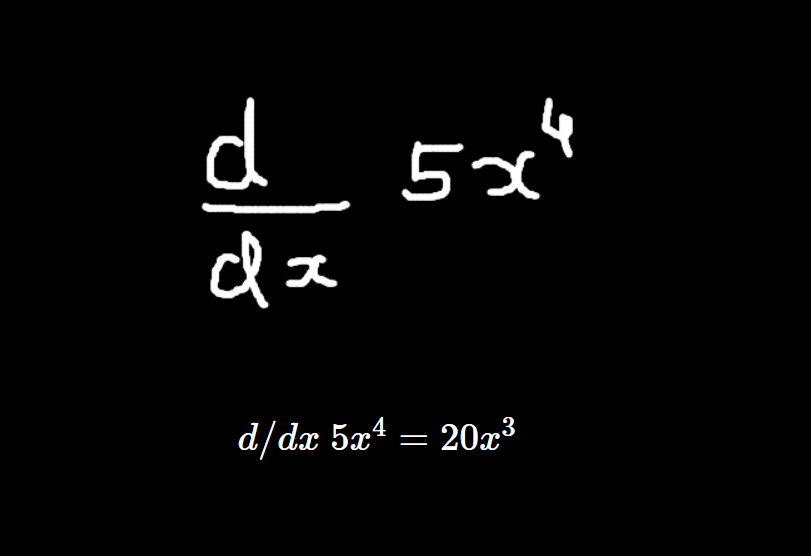 d/dx 5x⁴
d/dx 5x⁴ = 20x³